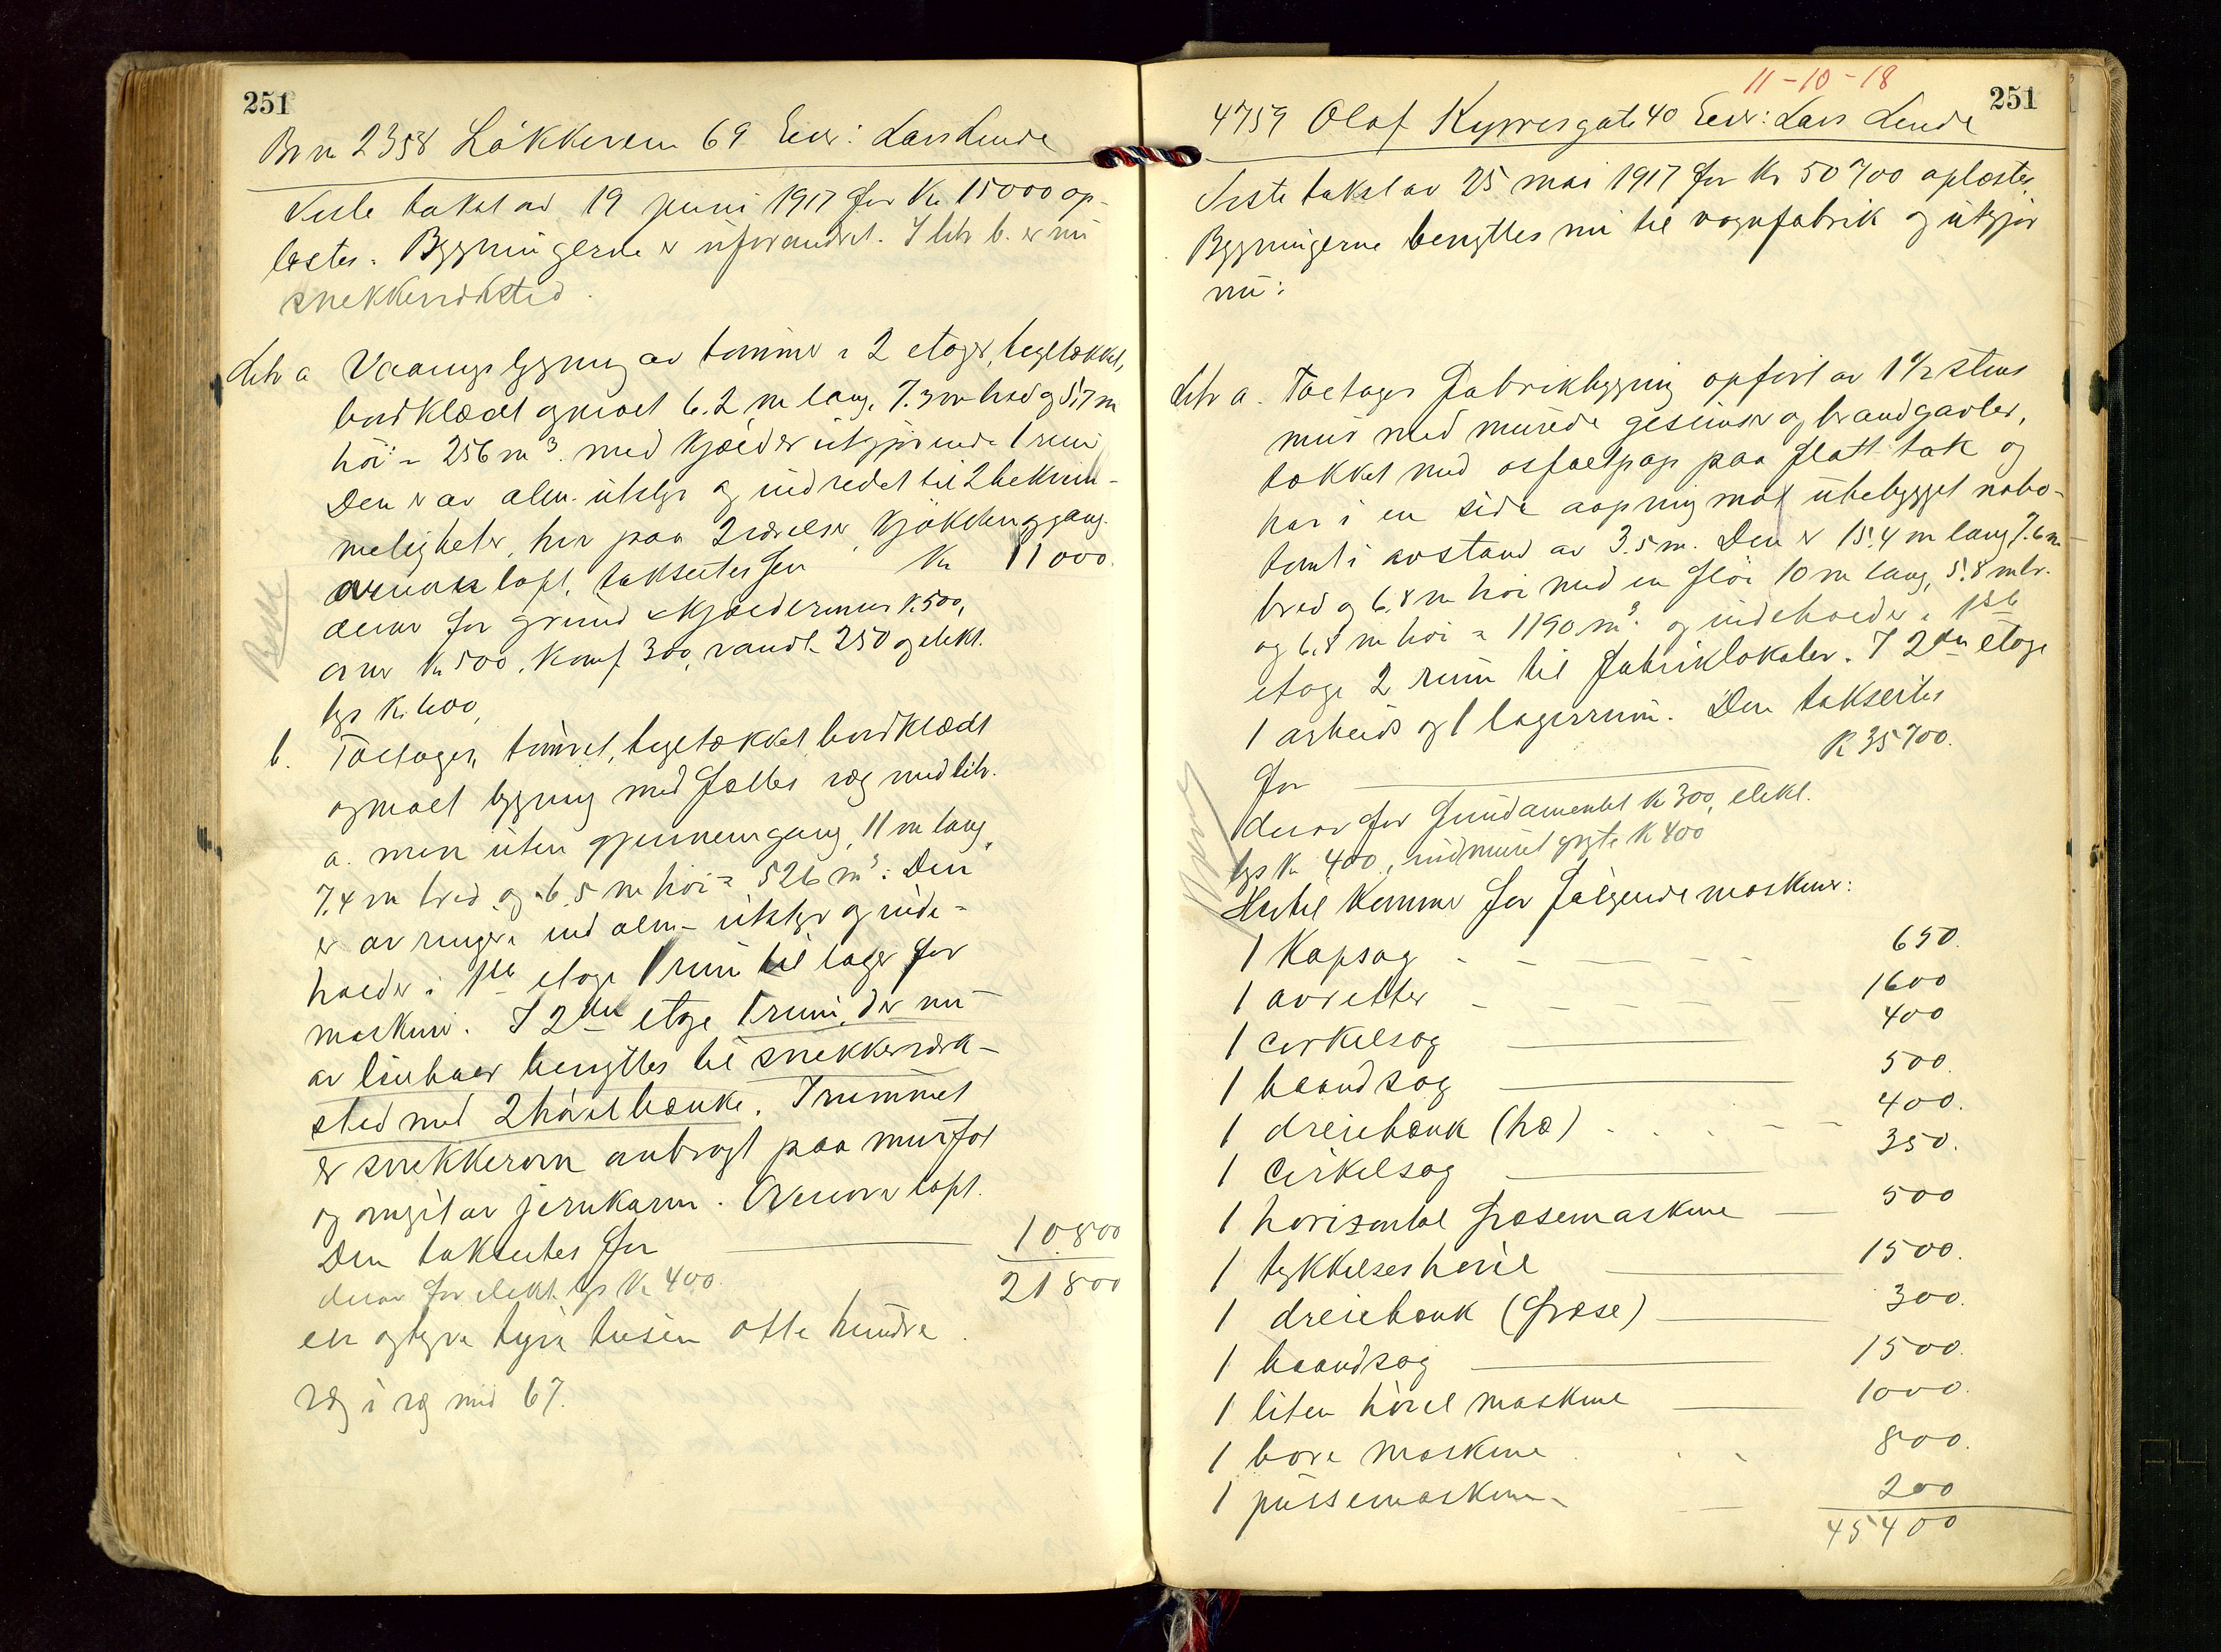 251
Br nr 2358 Løkkeveien 69 Eier: Lars Lende
Siste takst av 19 juni 1917 for Kr 15000 op-
læstes. Bygningerne er uforandret. I litr b. er nu
snekkerverksted.
Litr a Vaaningsbygning av tømmer i 2 etager, teglstækket,
bordklædt og malt 6.2 m lang, 7.3 m bred og 5.7 m
høi = 256 m³. med kjælder utgjørende 1 rum
Den er av alm. utstyr og indredet til 2 bekvem-
meligheter, hver paa 2 værelser, kjøkken og gang.
loft, taksertes for Kr 11000.
derav for grund & kjældermur Kr. 500,
Kr 500, Komf 300, vandl. 250 og elekt.
lys Kr. 600,
b. Toetages, tømret, teglstækket bordklædt
og malt bygning med fælles væg med litr.
a. men uten gjennemgang, 11 m lang,
7.4 m bred og 6.5 m høi = 526 m³. Den
er av ringere end alm. utstyr og inde-
holder i 1ste etage 1 rum til lager for
maskiner. I 2den etage 1 rum, der nu
av benyttes til snekkerverk-
sted med 2 høvelbænke. I rummet
er snekkerovn anbragt paa murfot
og omgit av jernkarm. loft.
Den taksertes for 10800
derav for elekt. lys Kr 400. 21800
en og tyve tusen otte hundre.
Væg i væg med 67.
11-10-18
251
4759 Olaf Kyrresgate 40 Eier: Lars Lende
Siste takst av 25 mai 1917 for Kr 50700 oplæstes.
Bygningerne benyttes nu til vognfabrik og utgjør
nu:
Litr a. Toetages Fabrikbygning opført av 1 1/2 stens
mur med murede gesimser og brandgavler,
tækket med asfaltpap paa flatt tak og
har i en side aapning mot ubebygget nabo-
tomt i avstand av 3.5 m. Den er 15.4 m lang 7.6 m
bred og 6.8 m høi med en fløi 10 m lang, 5.8 m br.
og 6.8 m høi = 1190 m³. og indeholder i 1ste
etage 2 rum til Fabriklokaler. I 2den etage
1 arbeids og 1 lagerrum. Den taksertes
for K 35700.
derav for fundamentet Kr 300, elekt.
lys Kr 400, indmuret gryte K 400
Hertil kommer for følgende maskiner:
1 Kapsag 650.
1 avretter 1600
1 cirkelsag 400
1 baandsag 500.
1 dreiebænk (træ) 400.
1 Cirkelsag 350.
1 horizontal fræsemaskine 500
1 tykkelseshøvel 1500.
1 dreiebænk (fræse) 300.
1 baandsag 1500.
1 liten høvel maskine 1000.
1 bore maskine 800.
1 pussemaskine 200
45400